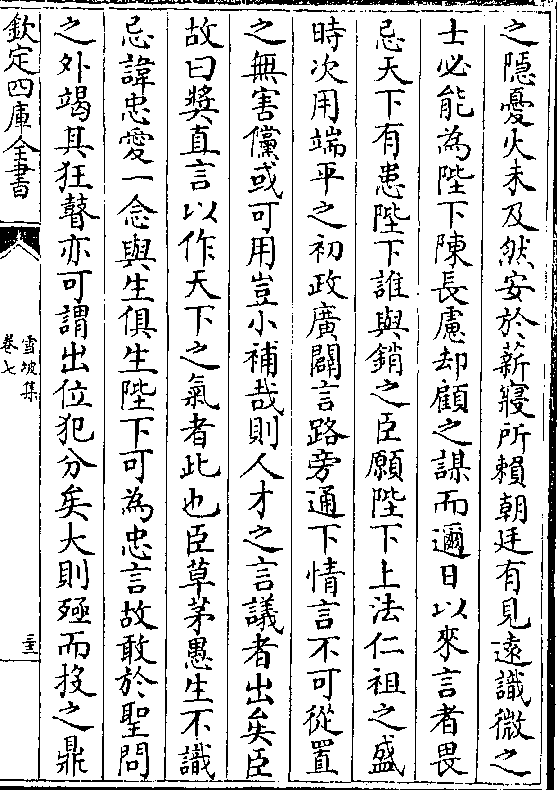 之隠憂火未及然安於薪寢所賴朝廷有見遠識微之
士必能為陛下陳長慮却顧之謀而邇日以來言者畏
忌天下有患陛下誰與銷之臣願陛下上法仁祖之盛
時次用端平之初政廣闢言路旁通下情言不可從置
之無害儻或可用豈小補哉則人才之言議者出矣臣
故曰奬直言以作天下之氣者此也臣草茅愚生不識
忌諱忠愛一念與生俱生陛下可為忠言故敢於聖問
之外竭其狂瞽亦可謂出位犯分矣大則殛而投之鼎
欽定四庫全書
雪坡集
卷七